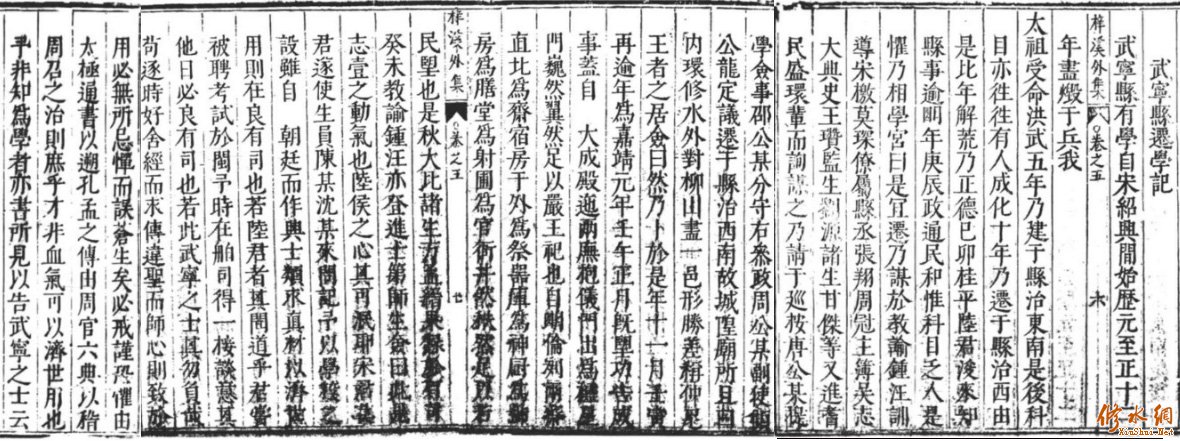 武寧縣遷學記
武寧縣有學自宋紹興間始歷元至正十一
年盡燬于兵我
太祖受命洪武五年乃建于縣治東南是後科
目亦徃徃有人成化十年乃遷于縣治西由
是比年解荒乃正德己卯桂平陸君浚來知
縣事逾四年庚辰政通民和惟科目之人是
懼乃相學宮曰是宜遷乃謀於教諭鍾汪訓
導宋檄莫琛僚屬縣丞張翔周冠主薄吳志
大典史王瓚監生劉源諸生甘傑等又進耆
民盛環輩而詢謀之乃請于巡按唐公某提
學僉事邵公某分守右參政周公某副使顧
公龍定議遷于縣治西南故城隍廟所且曰
內環修水外對柳山盡一邑形勝差稱仰思
王者之居僉曰然乃卜於是年十一月壬寅
再逾年為嘉靖元年壬午正月既塈功告成
事蓋自 大成殿迤兩廡抱儀門出為櫺星
門巍然翼然足以嚴王祀也自明倫列兩齋
直北為齋宿房于外為祭器庫為神厨為
房為膳堂為射圃為官衙井然秩然足以
民塈也是秋大比諸生方
癸未教諭鍾汪亦登進士第師生僉曰
志壹之動氣也陸侯之心其可泯耶宋君
君遂使生員陳某沈某來問記予以學校之
設雖自 朝廷而作興士類求真材以濟
用則在良有司也若陸君者其聞道乎君嘗
被聘考試於閩予時在舶司得一接談意其
他日必良有司也若此武寧之士其勿自
苟逐時好舍經而求傳違聖而師心則致
用必無所忌憚而誤蒼生矣必戒謹恐懼由
太極通書以遡孔孟之傳由周官六典以稽
周召之治則庶乎才非血氣可以濟世用也
予非知為學者亦書所見以告武寧之士云
梓溪外集
卷之五
梓溪外集
卷之五
修水網
XiuShui.Net